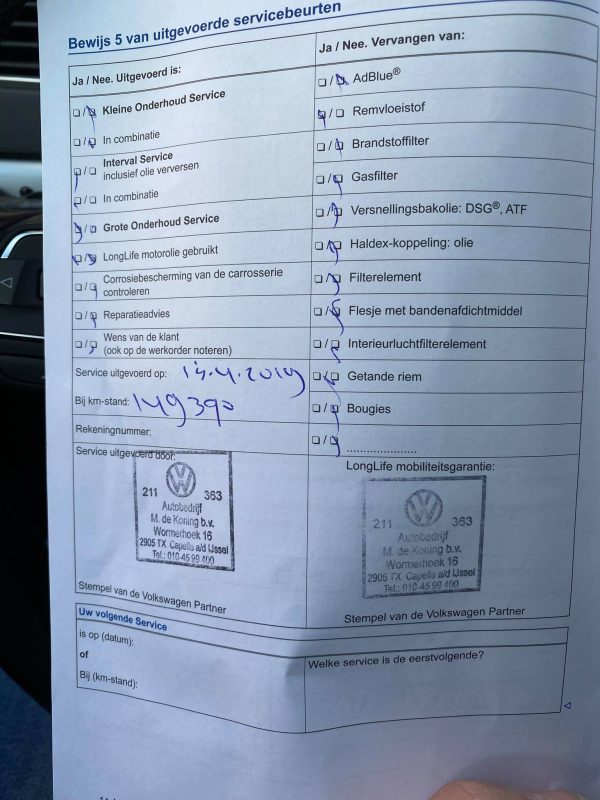 Bewijs 5 van uitgevoerde servicebeurten
Ja / Nee. Uitgevoerd is:
Kleine Onderhoud Service
In combinatie
Interval Service
inclusief olie verversen
In combinatie
Grote Onderhoud Service
LongLife motorolie gebruikt
Corrosiebescherming van de carrosserie
controleren
Reparatieadvies
Wens van de klant
(ook op de werkorder noteren)
Service uitgevoerd op:
Bij km-stand: 149390
Rekeningnummer:
Service uitgevoerd door:
211 363
Autobedrijf
M. de Koning b.v.
Wormerhoek 16
2905 TX Capelle a/d IJssel
Tel.: 010-45 99 400
Stempel van de Volkswagen Partner
Ja / Nee. Vervangen van:
AdBlue®
Remvloeistof
Brandstoffilter
Gasfilter
Versnellingsbakolie: DSG®, ATF
Haldex-koppeling: olie
Filterelement
Flesje met bandenafdichtmiddel
Interieurluchtfilterelement
Getande riem
Bougies
......................
LongLife mobiliteitsgarantie:
211 363
Autobedrijf
M. de Koning b.v.
Wormerhoek 16
2905 TX Capelle a/d IJssel
Tel.: 010-45 99 400
Stempel van de Volkswagen Partner
Uw volgende Service
is op (datum):
of
Bij (km-stand):
Welke service is de eerstvolgende?